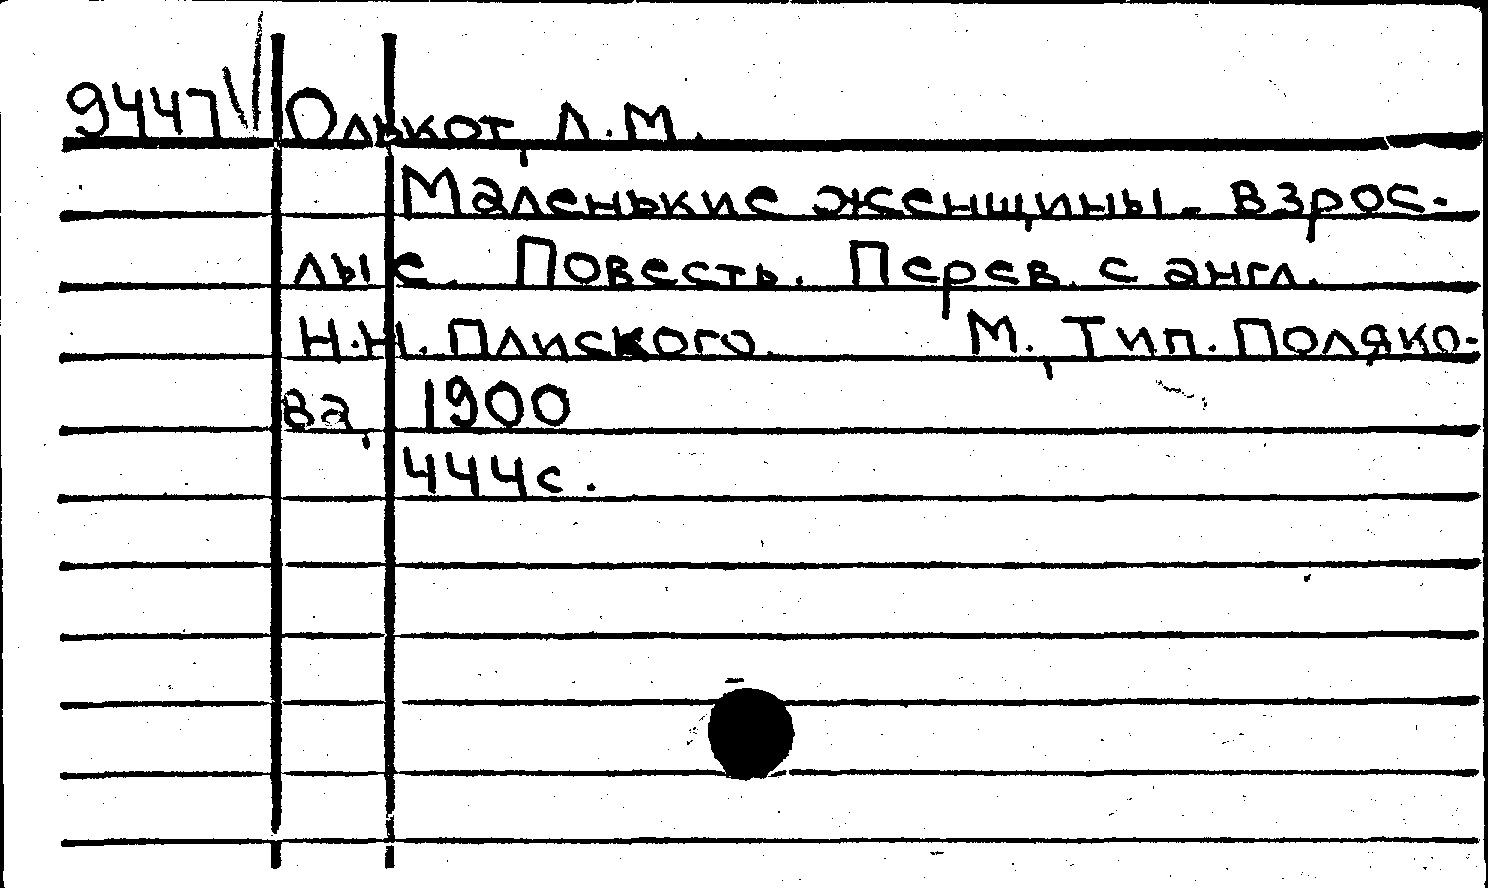 9447 Олькот, Л.М.
Маленькие женщины - взрос-
лые. Повесть. Перев. с англ.
Н.Н. Плиского. М., Тип. Поляко-
ва, 1900
444с.